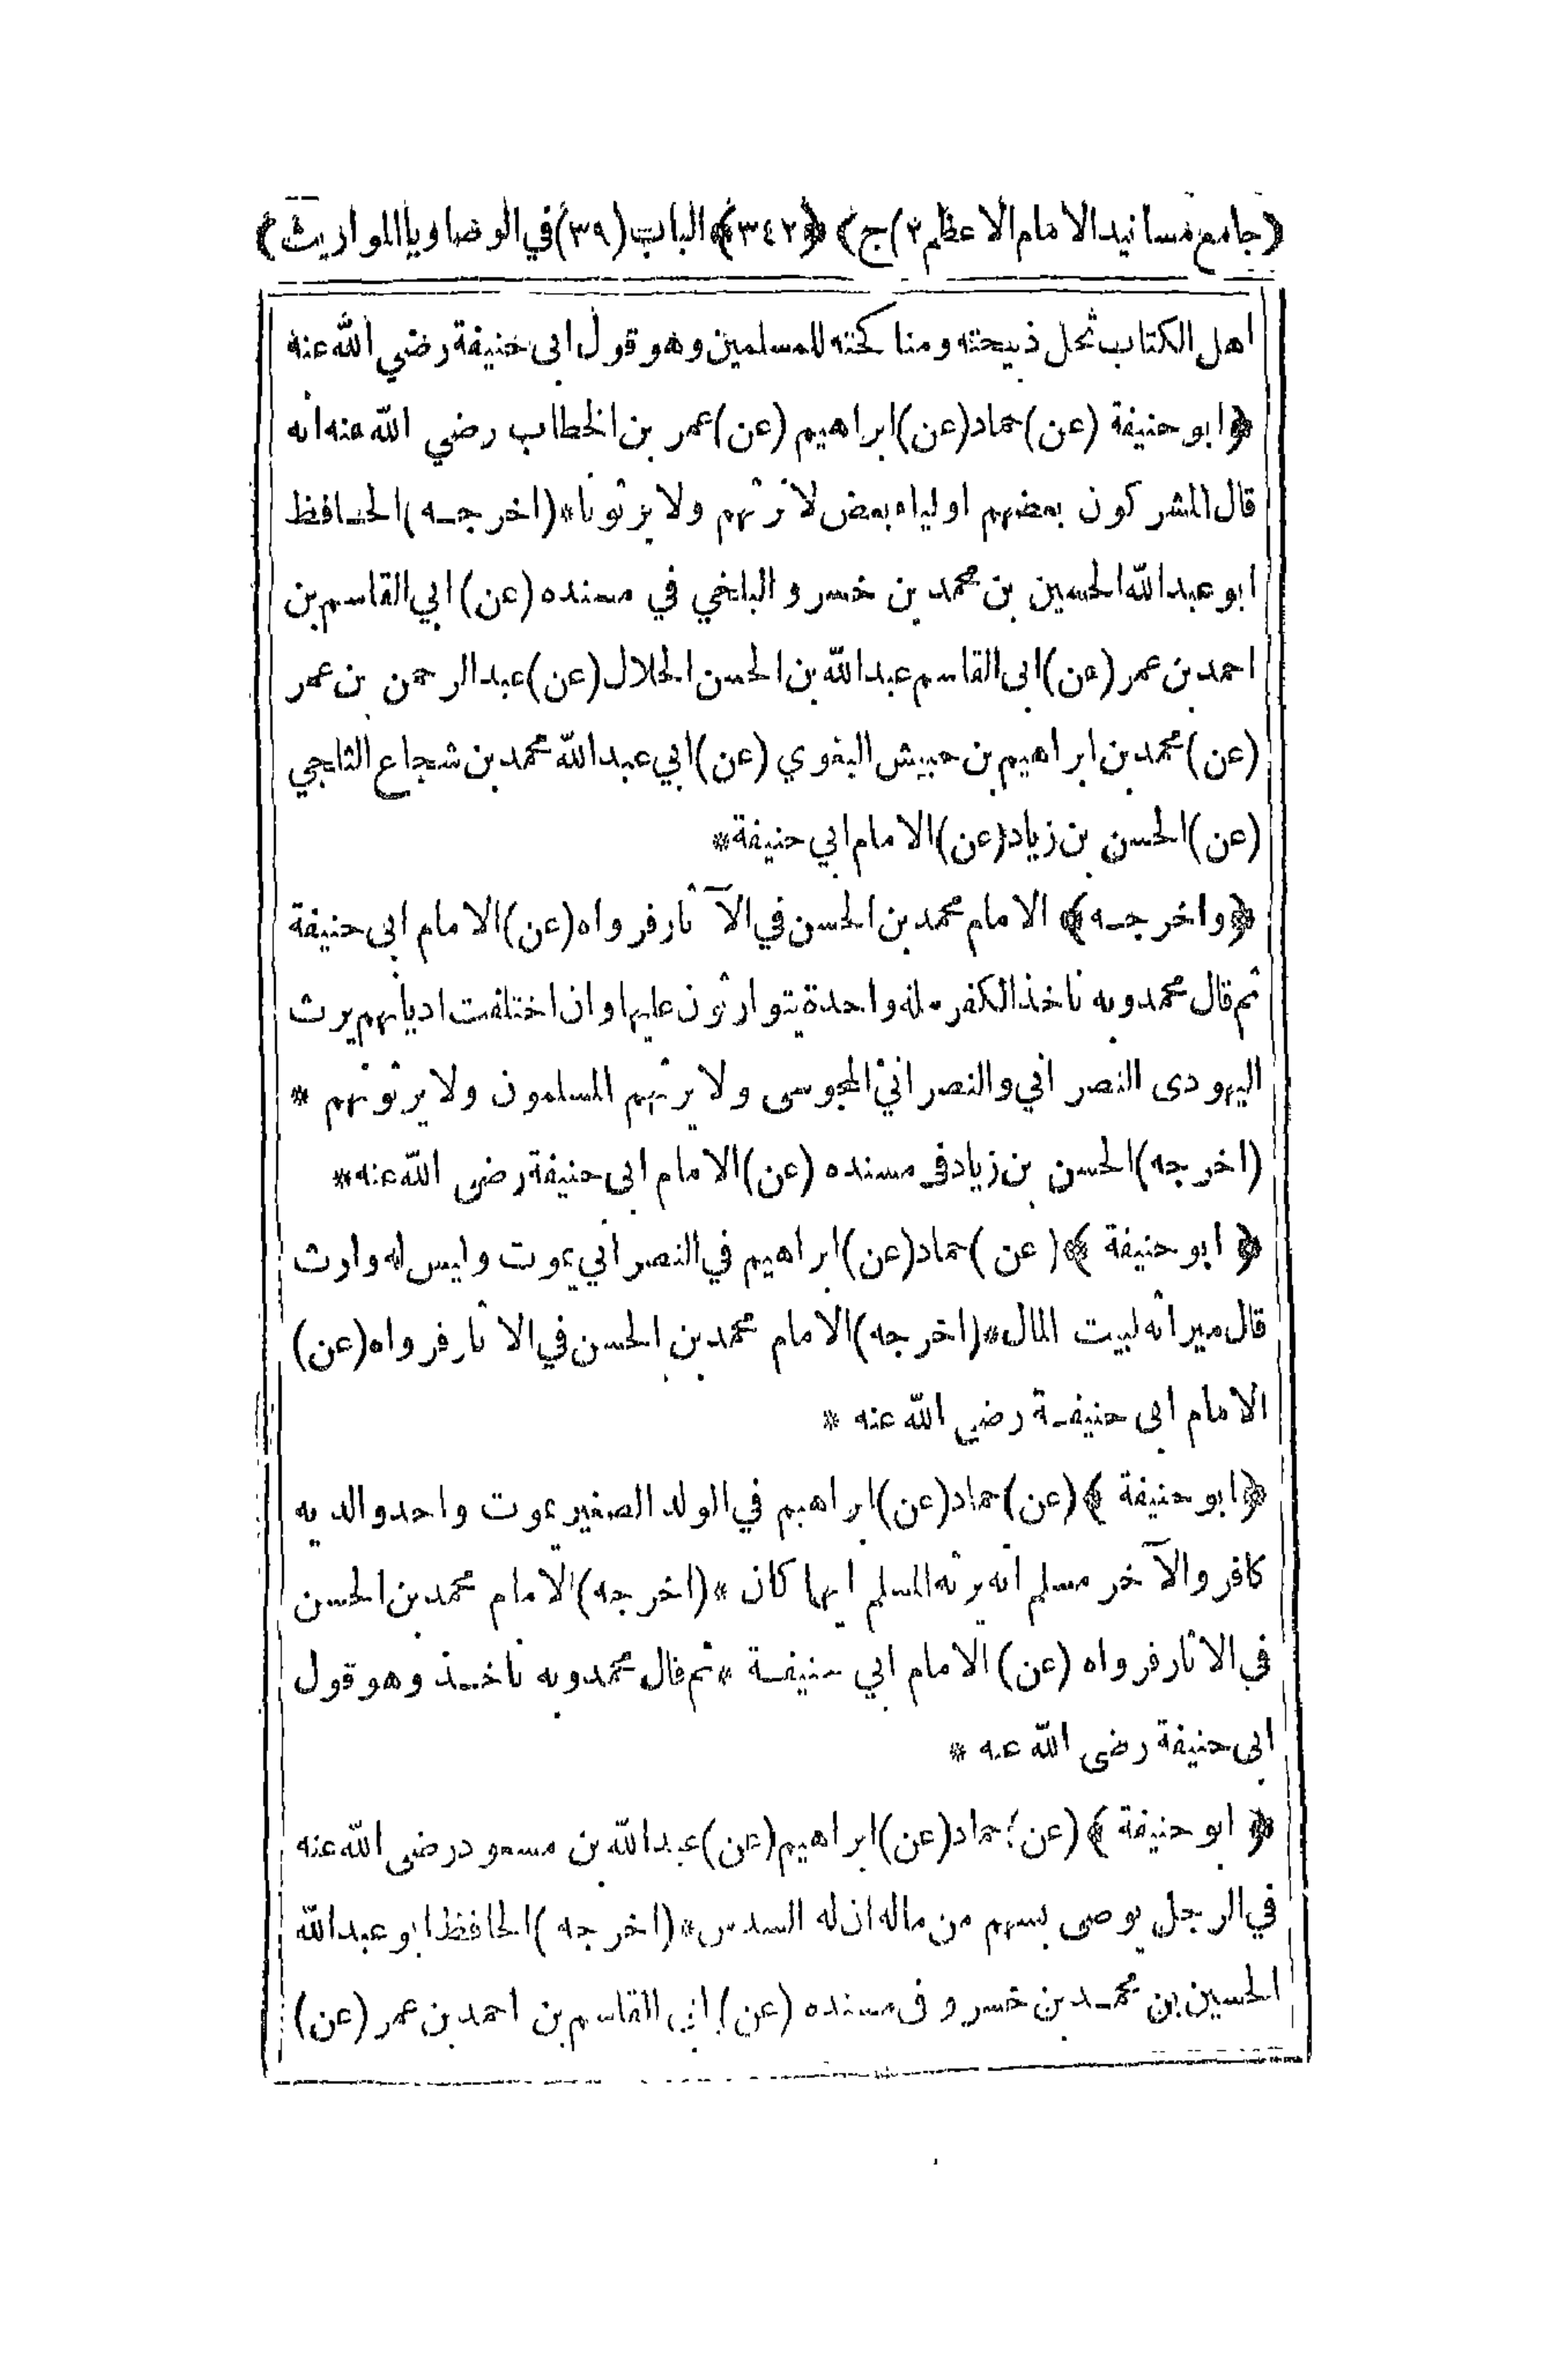 ﴿جامع مسانيد الامام الاعظم ٢)ج﴾ ﴿٣٤٢﴾ الباب (٣٩)في الوصاويا المواريث﴾
اهل الكتاب تحل ذبيحته ومناكحته للمسلمين وهو قول ابى حنيفة رضي الله عنه
﴿ابو حنيفة (عن)حماد(عن)ابراهيم (عن)عمر بن الخطاب رضي الله عنه انه
قال المشركون بعضهم اولياء بعض لا نرثهم ولا يرثونا*(اخرجه)الحافظ
ابو عبد الله الحسين بن محمد بن خسرو البلخي في مسنده (عن) ابي القاسم بن
احمد بن عمر (عن)ابى القاسم عبد الله بن الحسن الخلال (عن)عبد الرحمن بن عمر
(عن)محمد بن ابراهيم بن حبيش البغوي (عن)ابي عبد الله محمد بن شجاع الثلجي
(عن)الحسن بن زياد(عن)الامام ابي حنيفة*
﴿واخرجه﴾ الامام محمد بن الحسن في الآثار فرواه(عن)الامام ابى حنيفة
ثم قال محمد وبه ناخذ الكفر ملة واحدة يتوارثون عليها وان اختلفت اديانهم يرث
اليهودى النصراني والنصراني المجوسى ولا يرثهم المسلمون ولا يرثونهم *
(اخرجه)الحسن بن زياد في مسنده (عن)الامام ابى حنيفة رضى الله عنه*
﴿ ابو حنيفة ﴾(عن )حماد(عن)ابراهيم في النصراني يموت وليس له وارث
قال ميراثه لبيت المال*(اخرجه)الامام محمد بن الحسن في الاثار فرواه(عن)
الامام ابى حنيفة رضي الله عنه *
﴿ابو حنيفة ﴾(عن)حماد(عن)ابراهيم في الولد الصغير يموت واحد والديه
كافر والآخر مسلم انه يرثه المسلم ايهما كان *(اخرجه)الامام محمد بن الحسن
في الاثار فرواه (عن) الامام ابي حنيفة *ثم قال محمد وبه ناخذ وهو قول
ابى حنيفة رضى الله عنه *
﴿ ابو حنيفة ﴾(عن)حماد(عن)ابراهيم(عن)عبد الله بن مسعود رضى الله عنه
في الرجل يوصى بسهم من ماله ان له السدس*(اخرجه )الحافظ ابو عبد الله
الحسين بن محمد بن خسرو فى مسنده (عن)ابي القاسم بن احمد بن عمر (عن)